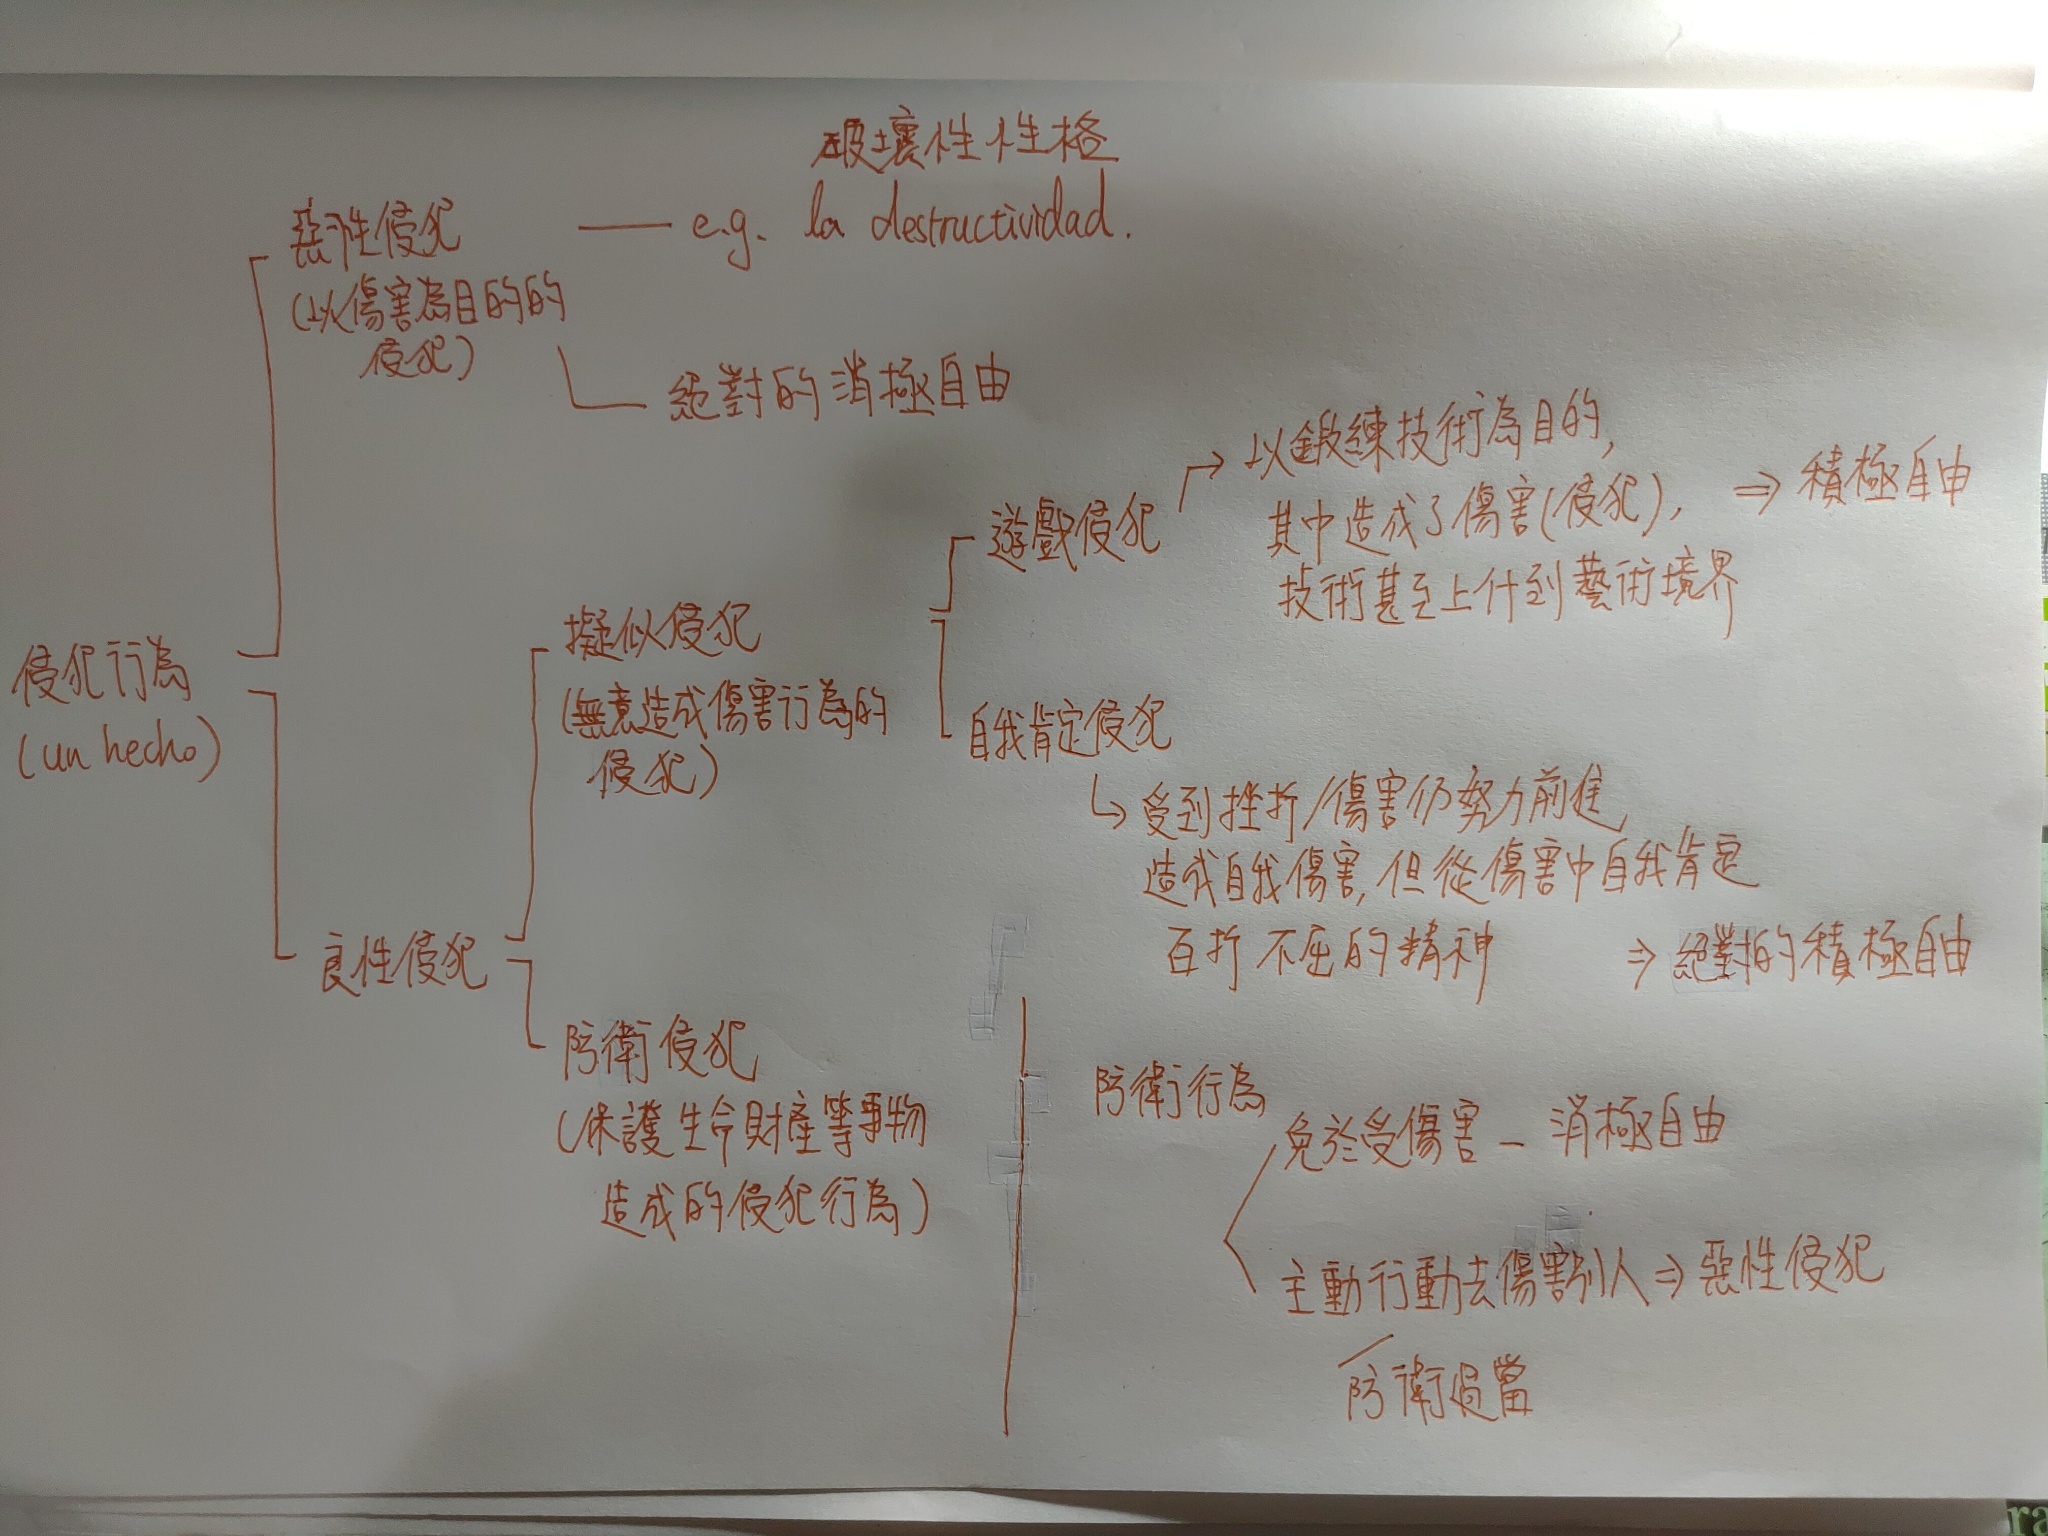 破壞性性格
惡性侵犯 — e.g. la destructividad.
(以傷害為目的的
侵犯)
絕對的消極自由
遊戲侵犯
以鍛練技術為目的,
其中造成了傷害(侵犯),
技術甚至上升到藝術境界
⇒ 積極自由
侵犯行為
(un hecho)
擬似侵犯
(無意造成傷害行為的
侵犯)
自我肯定侵犯
受到挫折/傷害仍努力前進
造成自我傷害,但從傷害中自我肯定
百折不屈的精神 ⇒ 絕對的積極自由
良性侵犯
防衛侵犯
(保護生命財產等事物
造成的侵犯行為)
防衛行為
免於受傷害 – 消極自由
主動行動去傷害別人 ⇒ 惡性侵犯
防衛過當
ra